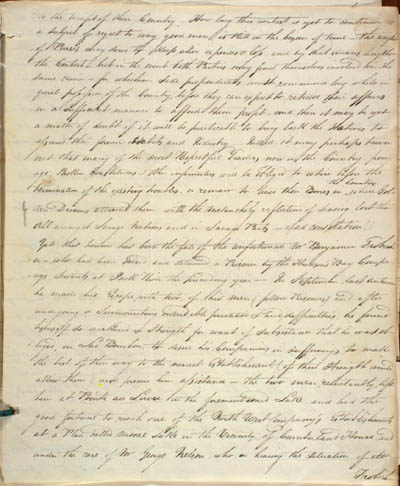 to the benefit of their Country — How long this contest is yet to continue
a subject of regret to every good man it is hid in the bosom of time — the
of Parties may have to expences & and by that means lengthen
the Contest — but in the end both Parties may find themselves involved in the
same ruin — for whichever side preponderates must remain a long while in
quiet possession of the Country, before they can expect to retrieve their affairs
in a sufficient manner to afford them profit, and then it may be yet
a matter of doubt if it will be practicable to bring back the Natives to
assume their former Habits and Industry — Indeed it may perhaps turn
out that many of the most Respectful Traders now in the Country,
age, Broken Constitutions & other infirmities will be obliged to retire before the
termination of the existing troubles, or remain to leave their Bones in the Country where
Dreams attracted them, with the melancholy reflection of having lost their
All amongst Savage Nations and in Savage — sad consolation!!
Yet this however has been the fate of the unfortunate Mr Benjamin Frobish
er — who had been and detained a Prisoner by the Hudsons Bay Compa
nys Servants at the preceding year — In September last
he made his Escape with two of his men (fellow Prisoners) and after
undergoing & Surmounting considerable & difficulties he found
himself so weakened in Strength for want of Subsistence that he was ob
liged on to desire his Companions in Sufferings to make
the best of their way to the nearest Establishment (if their Strength would
allow them) and procure him assistance — the two men reluctantly left
him at on the Lake and had the
good fortune to reach one of the North West Companys Establishments
at a Place called Moose Lake in the Vicinity of Cumberland House and
under the care of Mr George Nelson who on hearing the Situation of Mr
Frobish